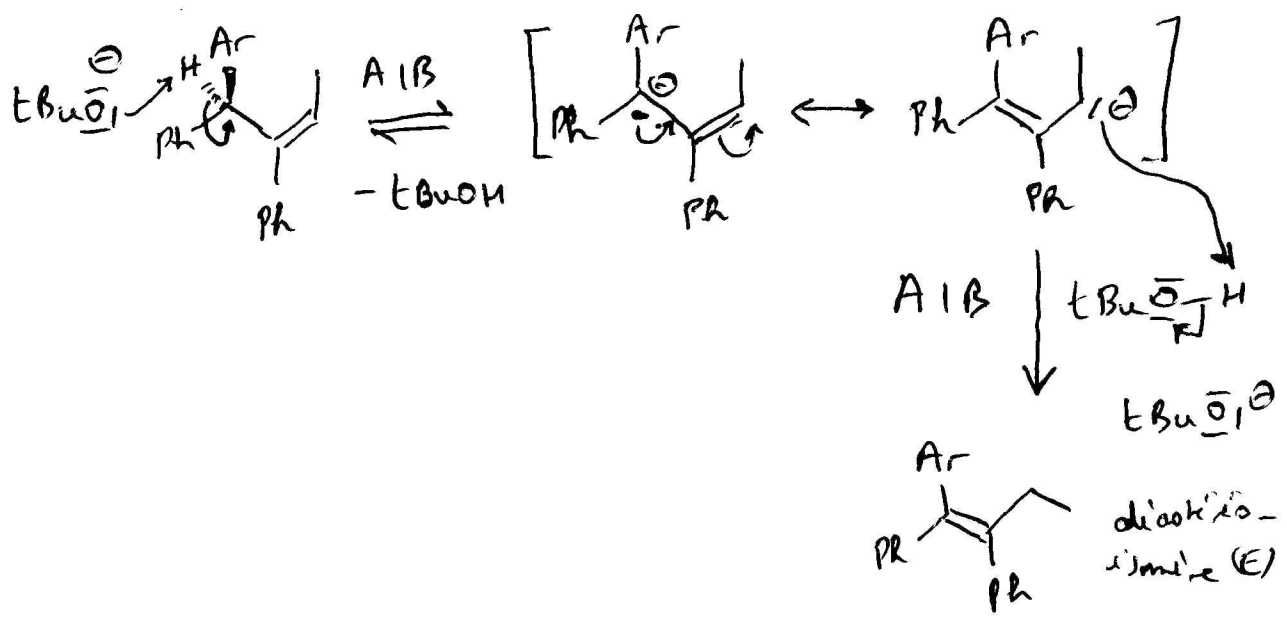 Ar
⊖
H
A|B
tBuO̅|
Ph
Ph
- tBuOH
Ar
⊖
Ph
Ph
Ar
Ph
⊖
Ph
A|B
tBuO̅-H
tBuO̅|⊖
Ar
Ph
Ph
diastéréo-
isomère (E)